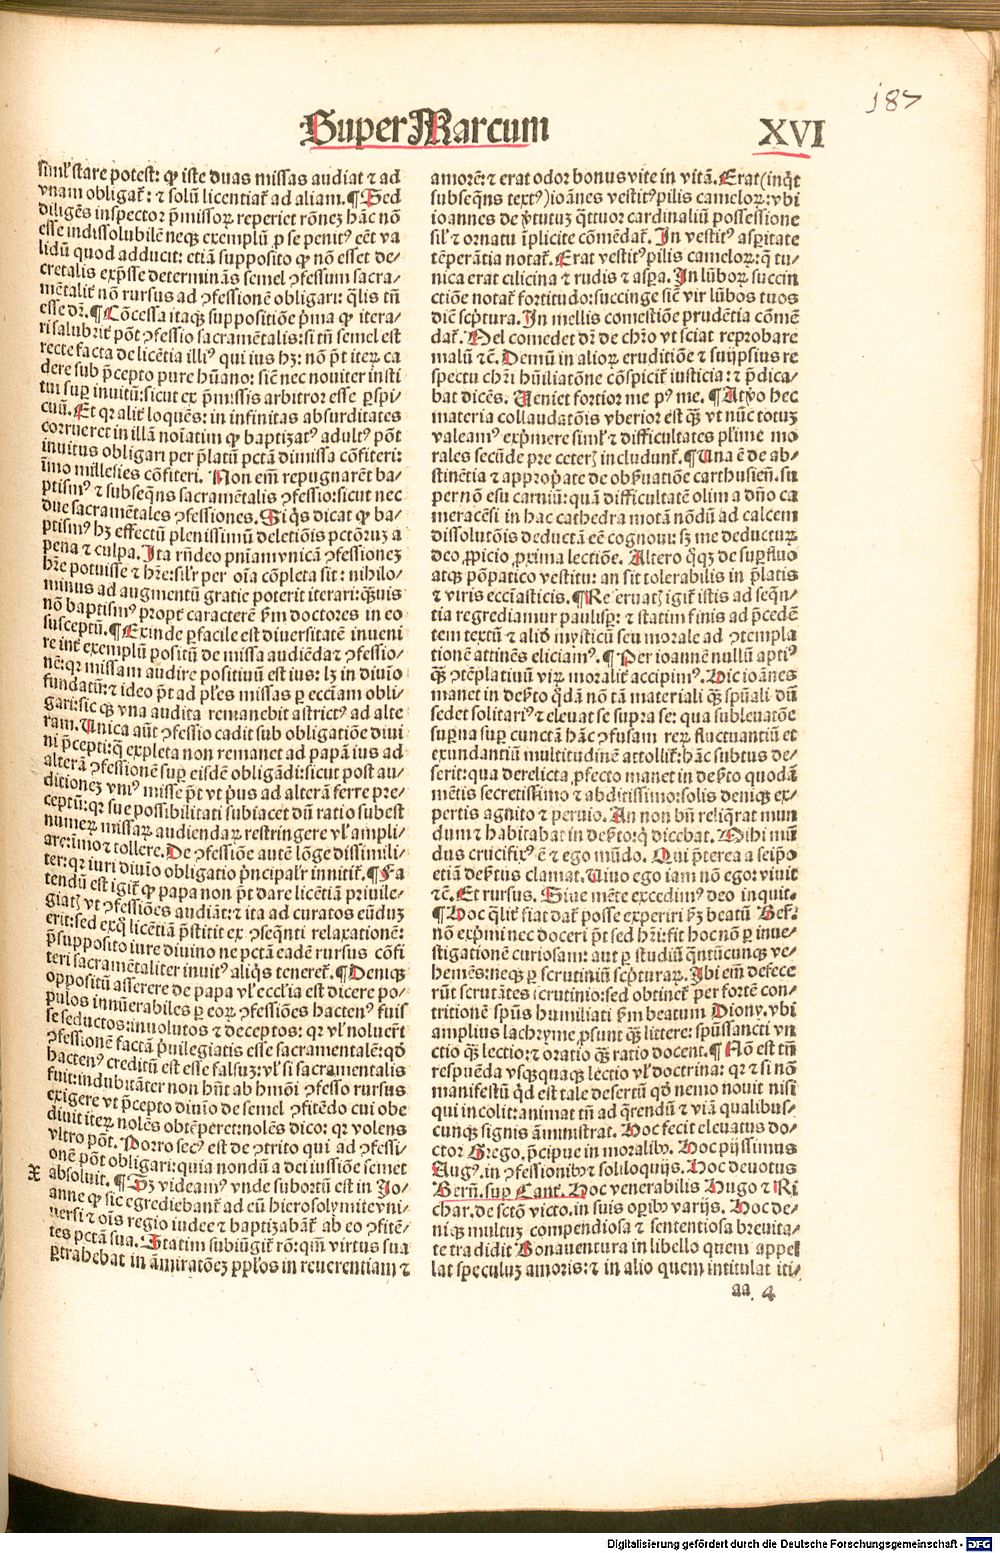 187
Super Marcum
XVI
simul stare potest: ꝙ iste duas missas audiat ⁊ ad
vnam obligat᷑: ⁊ solū licentiat᷑ ad aliam. ¶ Sed
diligēs inspector p̄missoꝝ reperiet rōneꝫ hāc nō
esse indissolubilē neqꝫ exemplū ꝓ se penitꝰ eēt va
lidū quod adducit: etiā supposito ꝙ nō esset de⸗
cretalis exp̄sse determinās semel ꝯfessum sacra⸗
mētalit᷑ nō rursus ad ꝯfessionē obligari: q̄lis tn̄
esse dr̄. ¶ Cōcessa itaqꝫ suppositiōe p̄ma ꝙ itera⸗
ri salubrit᷑ pōt ꝯfessio sacramētalis: si tn̄ semel est
recte facta de licētia illiꝰ qui ius hꝫ: nō p̄t iteꝝ ca
dere sub p̄cepto pure hūano: sic̄ nec nouiter insti
tui suꝑ inuitū: sicut ex p̄missis arbitror esse ꝑspi⸗
cuū. Et qꝛ alit᷑ loquēs: in infinitas absurditates
corrueret in illā noīatim ꝙ baptizatꝰ adultꝰ pōt
inuitus obligari per p̄latū pctā dimissa cōfiteri:
īmo millesies cōfiteri. Non em̄ repugnarēt ba⸗
ptismꝰ ⁊ subseqn̄s sacramētalis ꝯfessio: sicut nec
due sacramētales ꝯfessiones. Si q̄s dicat ꝙ ba⸗
ptismꝰ hꝫ effectū plenissimū deletiōis pctōruꝫ a
pena ⁊ culpa. Ita rn̄deo pn̄iam vnicā ꝯfessioneꝫ
hr̄e potuisse ⁊ hr̄e: silr̄ per oīa cōpleta sit: nihilo⸗
minus ad augmentū gratie poterit iterari: q̄uis
nō baptismꝰ propt᷑ caracterē ẜm doctores in eo
susceptū. ¶ Exinde ꝑfacile est diuersitatē inueni
re int᷑ exemplū positū de missa audiēda ⁊ ꝯfessio⸗
ne: qꝛ missam audire positiuū est ius: lꝫ in diuīo
fundatū: ⁊ ideo p̄t ad pl̄es missas ꝑ ecciam obli⸗
gari: sic qꝫ vna audita remanebit astrictꝰ ad alte
ram. Vnica aūt ꝯfessio cadit sub obligatiōe diui
ni p̄cepti: q̄ expleta non remanet ad papā ius ad
alterā ꝯfessionē suꝑ eisdē obligādi: sicut post au⸗
ditioneꝫ vniꝰ misse p̄t vt p̄us ad alterā ferre pre⸗
ceptū: qꝛ sue possibilitati subiacet dū ratio subest
numeꝝ missaꝝ audiendaꝝ restringere vl̓ ampli⸗
are: īmo ⁊ tollere. De ꝯfessiōe autē lōge dissimili⸗
ter: qꝛ iuri diuīo obligatio p̄ncipalr̄ innitit᷑. ¶ Fa
tendū est igit᷑ ꝙ papa non p̄t dare licētiā priuile⸗
giatꝭ vt ꝯfessiōes audiāt: ⁊ ita ad curatos eūduꝫ
erit: sed exq̄ licētiā p̄stitit ex ꝯseqn̄ti relaxationē:
p̄supposito iure diuino ne pctā eadē rursus cōfi
teri sacramētaliter inuitꝰ aliq̄s teneret᷑. ¶ Deniqꝫ
oppositū asserere de papa vl̓ ecclīa est dicere po⸗
pulos innūerabiles ꝑ eoꝝ ꝯfessiōes hactenꝰ fuis
se seductos: inuolutos ⁊ deceptos: qꝛ vl̓ noluer̄t
ꝯfessionē factā p̄uilegiatis esse sacramentalē: qd̓
hactenꝰ creditū est esse falsuꝫ: vl̓ si sacramentalis
fuit: indubitāter non hn̄t ab hmōi ꝯfesso rursus
exigere vt p̄cepto diuīo de semel ꝯfitēdo cui obe
diuit iteꝝ nolēs obtēperet: nolēs dico: qꝛ volens
vltro pōt. Porro secꝰ est de ꝯtrito qui ad ꝯfessi⸗
onē pōt obligari: quia nondū a dei iussiōe semet
X absoluit. ¶ Sꝫ videamꝰ vnde subortū est in Jo⸗
anne ꝙ sic egrediebant᷑ ad eū hierosolymite vni⸗
uersi ⁊ oīs regio iudee ⁊ baptizabāt᷑ ab eo ꝯfitē⸗
tes pctā sua. Statim subiūgit᷑ rō: qm̄ virtus sua
ꝑtrahebat in āmiratōeꝫ ppl̓os in reuerentiam ⁊
amorē: ⁊ erat odor bonus vite in vitā. Erat (inq̄t
subseqn̄s textꝰ) ioānes vestitꝰ pilis cameloꝝ: vbi
ioannes de v̓tutuꝫ q̄ttuor cardinaliū possessione
sil̓ ⁊ ornatu īplicite cōmēdat᷑. In vestitꝰ asꝑitate
tēperātia notat᷑. Erat vestitꝰ pilis cameloꝝ: q̄ tu⸗
nica erat cilicina ⁊ rudis ⁊ asꝑa. In lūboꝝ succin
ctiōe notat᷑ fortitudo: succinge sic̄ vir lūbos tuos
diē sc̓ptura. In mellis comestiōe prudētia cōmē
dat᷑. Mel comedet dr̄ de chr̄o vt sciat reprobare
malū ⁊c̄. Demū in alioꝝ eruditiōe ⁊ suijpsius re
spectu chr̄i hūiliatōne cōspicit᷑ iusticia: ⁊ p̄dica⸗
bat dicēs. Veniet fortior me pꝰ me. ¶ At ꝟo hec
materia collaudatōis vberior est qꝫ vt nūc totuꝫ
valeamꝰ exp̄mere siml̓ ⁊ difficultates pl̓ime mo
rales secūde pre ceterꝭ includunt᷑. ¶ Una ē de ab⸗
stinētia ⁊ appropiate de obẜuatiōe carthusieñ. su
per nō esu carniū: quā difficultatē olim a dn̄o ca
meracēsi in hac cathedra motā nōdū ad calcem
dissolutōis deductā eē cognoui: sꝫ me deductuꝝ
deo ꝓpicio ꝓxima lectiōe. Altero q̄qꝫ de suꝑfluo
atqꝫ pōpatico vestitu: an sit tolerabilis in p̄latis
⁊ viris ecciasticis. ¶ Reseruatꝭ igit᷑ istis ad seqn̄⸗
tia regrediamur paulisꝑ: ⁊ statim finis ad p̄cedē
tem textū ⁊ aliq̓d mysticū seu morale ad ꝯtempla
tionē attinēs eliciamꝰ. ¶ Per ioannē nullū aptiꝰ
qꝫ ꝯtēplatiuū viꝝ moralit᷑ accipimꝰ. Hic ioānes
manet in deẜto q̄dā nō tā materiali qꝫ sp̄uali dū
sedet solitariꝰ ⁊ eleuat se supra se: qua subleuatōe
suꝑna suꝑ cunctā hāc ꝯfusam reꝝ fluctuantiū et
exundantiū multitudinē attollit᷑: hāc subtus de⸗
serit: qua derelicta ꝓfecto manet in deẜto quodā
mētis secretissimo ⁊ abditissimo: solis deniqꝫ ex⸗
pertis agnito ⁊ peruio. An non bn̄ reliq̄rat mun
dum ⁊ habitabat in deẜto: q̓ dicebat. Mihi mū
dus crucifixꝰ ē ⁊ ego mūdo. Qui p̄terea a seip̄o
etiā deẜtus clamat. Viuo ego iam nō ego: viuit
⁊c̄. Et rursus. Siue mēte excedimꝰ deo inquit.
¶ Hoc q̄lit᷑ fiat dat᷑ posse experiri ẜꝫ beatū Ber̄.
nō exp̄mi nec doceri p̄t sed hr̄i: fit hoc nō ꝑ inue⸗
stigationē curiosam: aut ꝑ studiū q̄ntūcunqꝫ ve⸗
hemēs: neqꝫ ꝑ scrutiniū sc̓pturaꝝ. Ibi em̄ defece
rūt scrutātes scrutinio: sed obtinet᷑ per fortē con⸗
tritionē spūs humiliati ẜm beatum Diony. vbi
amplius lachryme ꝓsunt qꝫ littere: spūssancti vn
ctio qꝫ lectio: ⁊ oratio qꝫ ratio docent. ¶ Nō est tn̄
respuēda vsqꝫquaqꝫ lectio vl̓ doctrina: qꝛ ⁊ si nō
manifestū q̓d est tale desertū qd̓ nemo nouit nisi
qui incolit: animat tn̄ ad q̄rendū ⁊ viā qualibus⸗
cunqꝫ signis āministrat. Hoc fecit eleuatus do⸗
ctor Grego. p̄cipue in moralibꝰ. Hoc pijssimus
Augꝰ. in ꝯfessionibꝰ ⁊ soliloquijs. Hoc deuotus
Berñ. suꝑ Cant᷑. Hoc venerabilis Hugo ⁊ Ri
char. de sctō victo. in suis opibꝰ varijs. Hoc de⸗
niqꝫ multuꝫ compendiosa ⁊ sententiosa breuita⸗
te tradidit Bonauentura in libello quem appel
lat speculuꝫ amoris: ⁊ in alio quem intitulat iti⸗
aa. 4
Digitalisierung gefördert durch die Deutsche Forschungsgemeinschaft - DFG